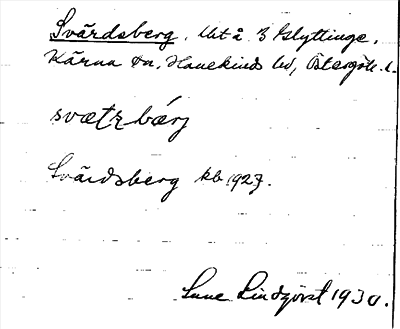 Svärdsberg. Utå 3 Glyttinge.
Kärna sn. Hanekinds hd, Östergötl. l.
svætzbærj
Svärdsberg kb 1927.
Sune Lindqvist 1930.